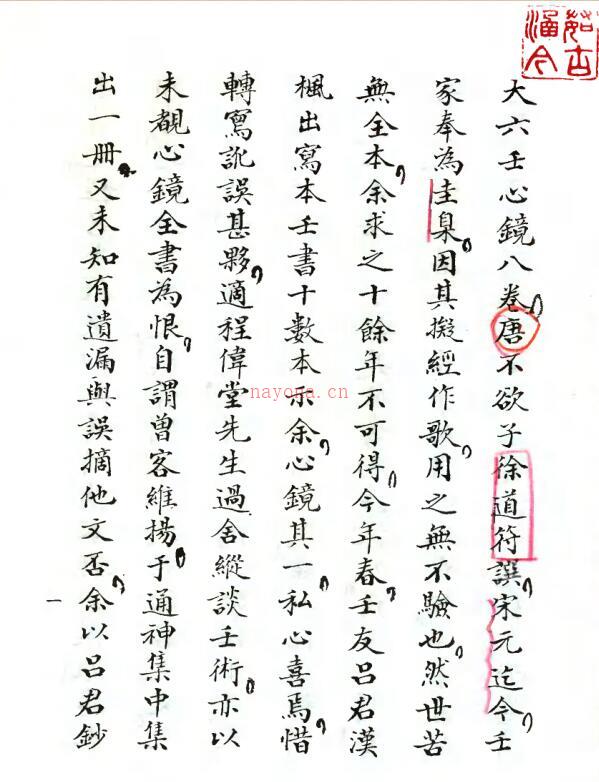 大六壬心鏡八卷唐不欲子徐道符譔宋元迄今壬
家奉為圭臬因其擬經作歌用之無不驗也然世苦
無全本余求之十餘年不可得今年春壬友呂君漢
楓出寫本壬書十數本示余心鏡其一私心喜焉惜
轉寫訛誤甚夥適程偉堂先生過舍縱談壬術亦以
未覩心鏡全書為恨自謂曾客維揚于通神集中集
出一冊又未知有遺漏與誤摘他文否余以呂君鈔
一
茹古涵今
nayona.cn